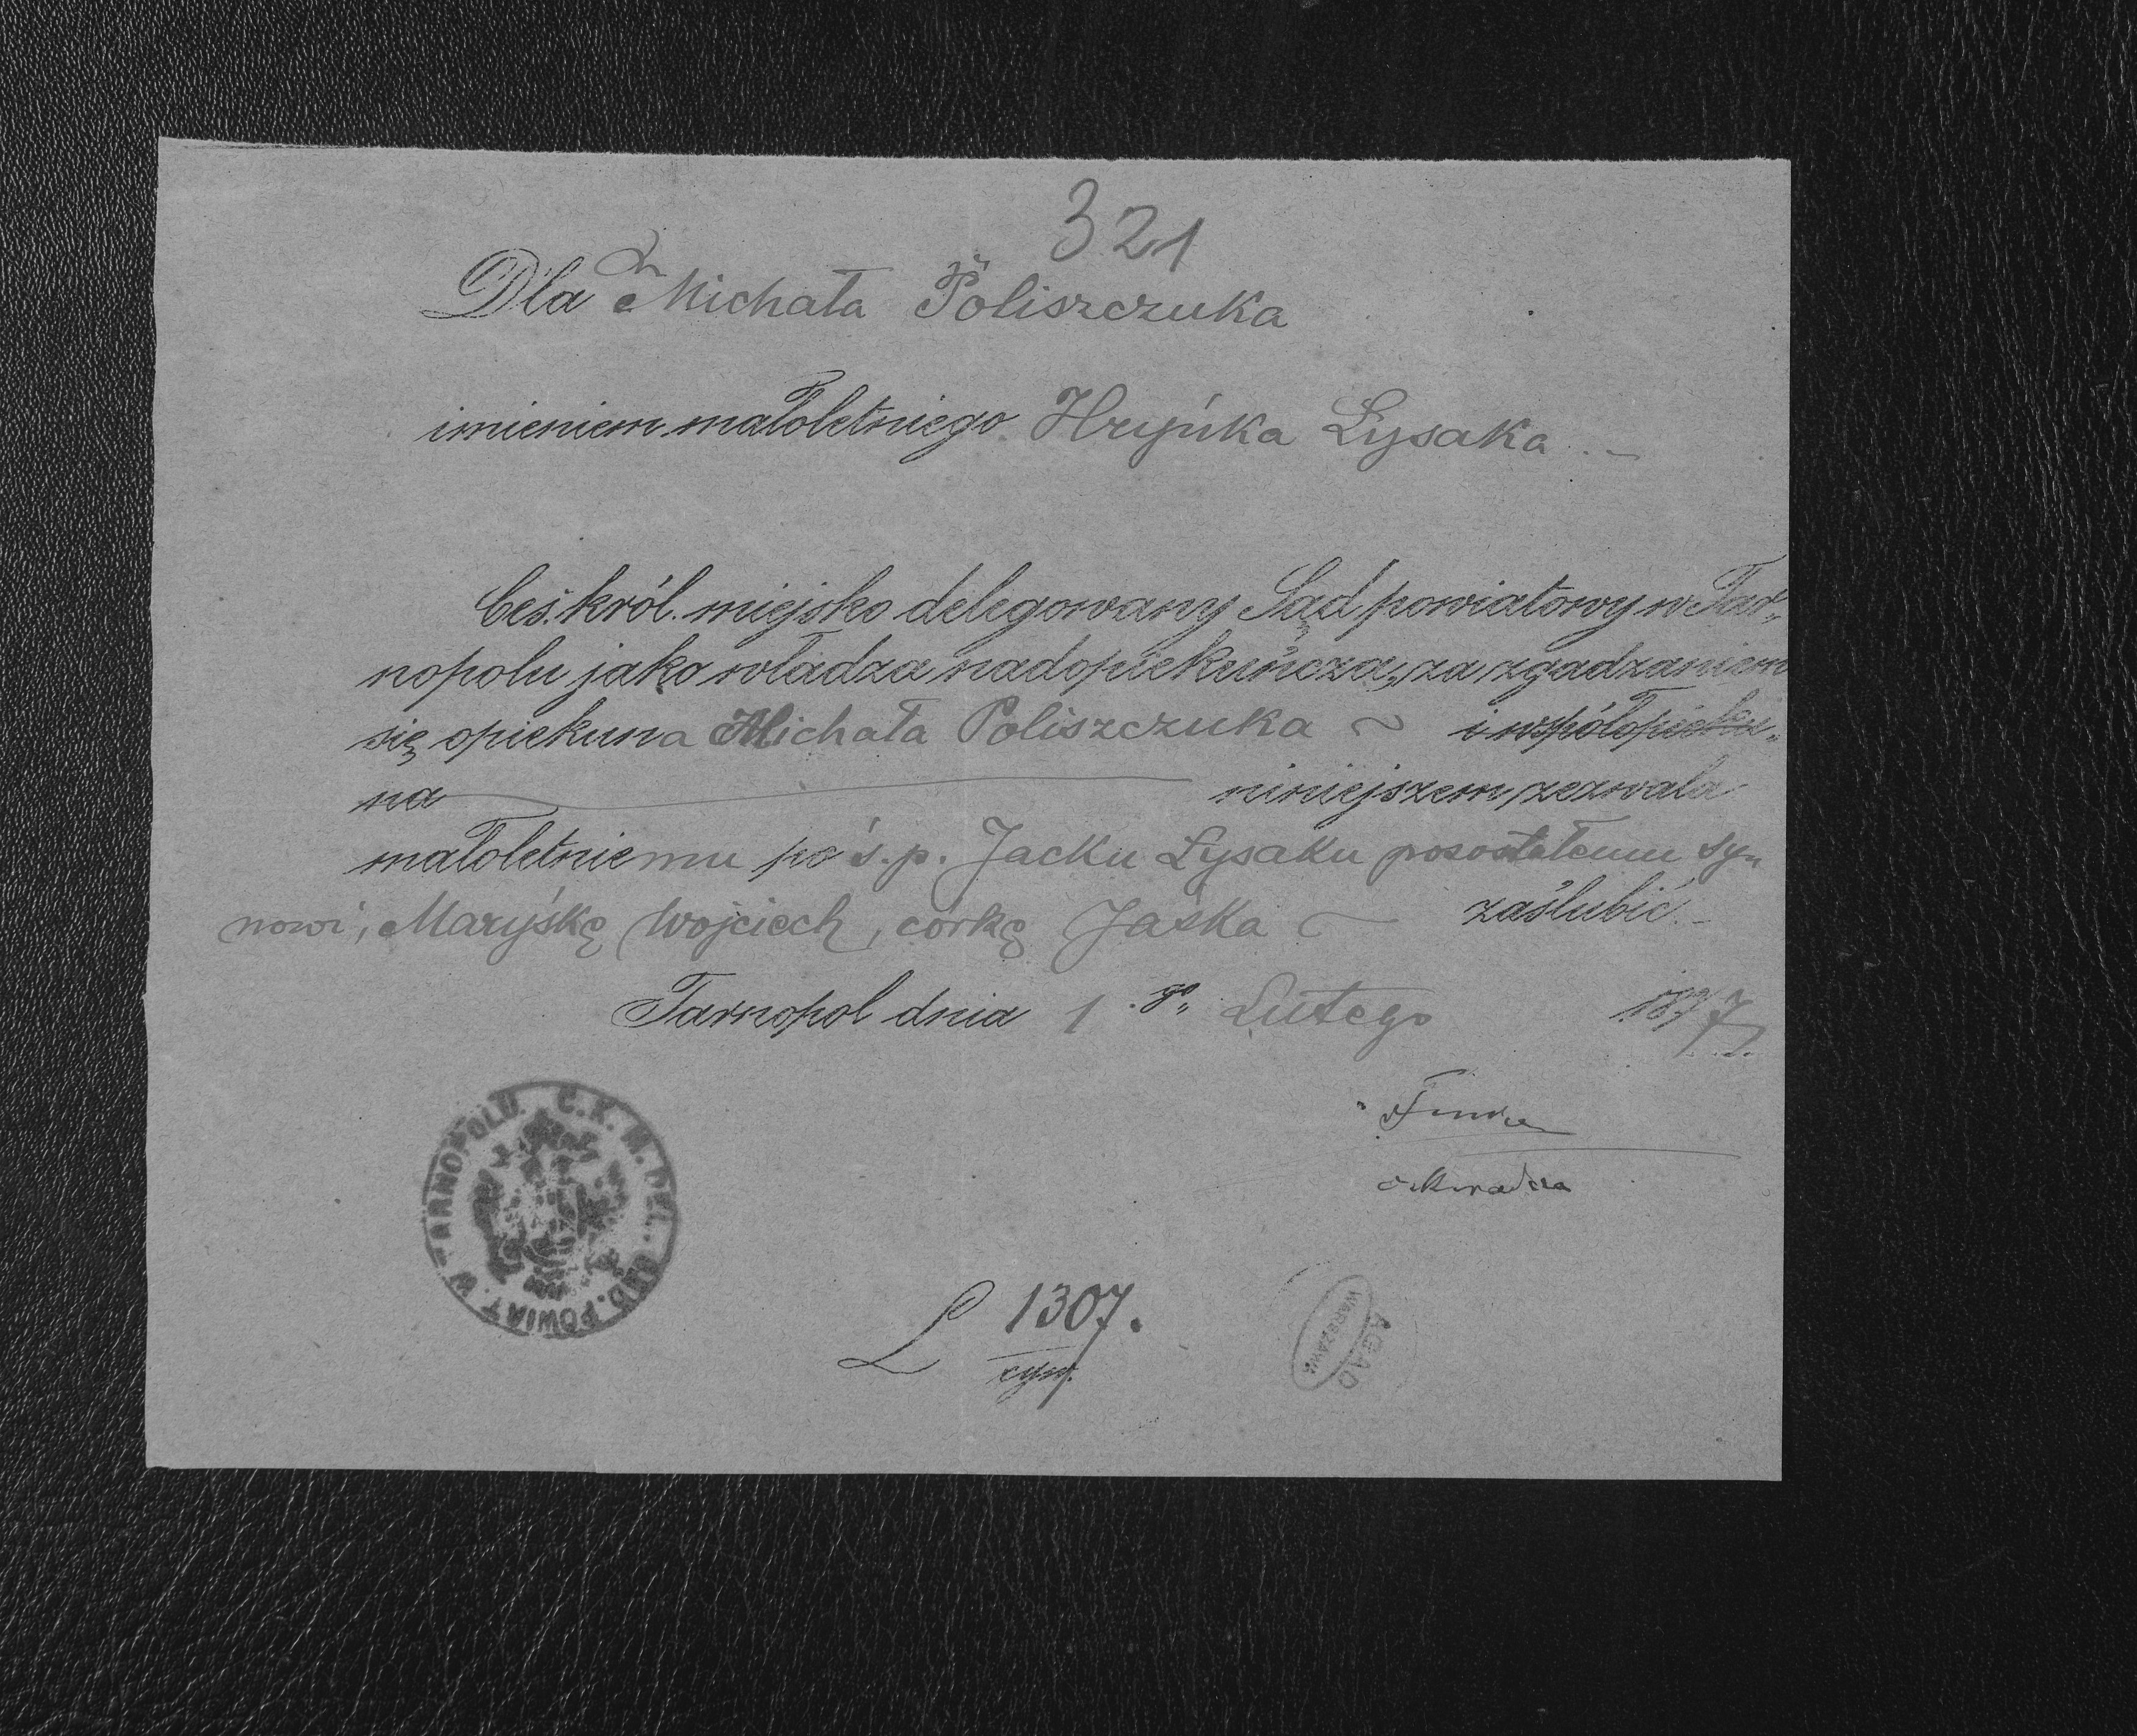 321
Dla Michała Poliszczuka
imieniem małoletniego Hryńka Łysaka . –
Ces. król. miejsko delegowany Sąd powiatowy w Tar„
nopolu jako władza nadopiekuńcza, za zgadzaniem
się opiekuna Michała Poliszczuka ~ i współopieku„
na niniejszem zezwala
małoletniemu po ś.p. Jacku Łysaku pozostałemu sy„
nowi, Maryśkę Wojciech, córkę Jaśka ~ zaślubić. –
Tarnopol dnia 1 go Lutego 1877
C.K. M. DEL. SĄD. POWIAT. W TARNOPOLU.
L 1307.
cyw.
AGAD
WARSZAWA